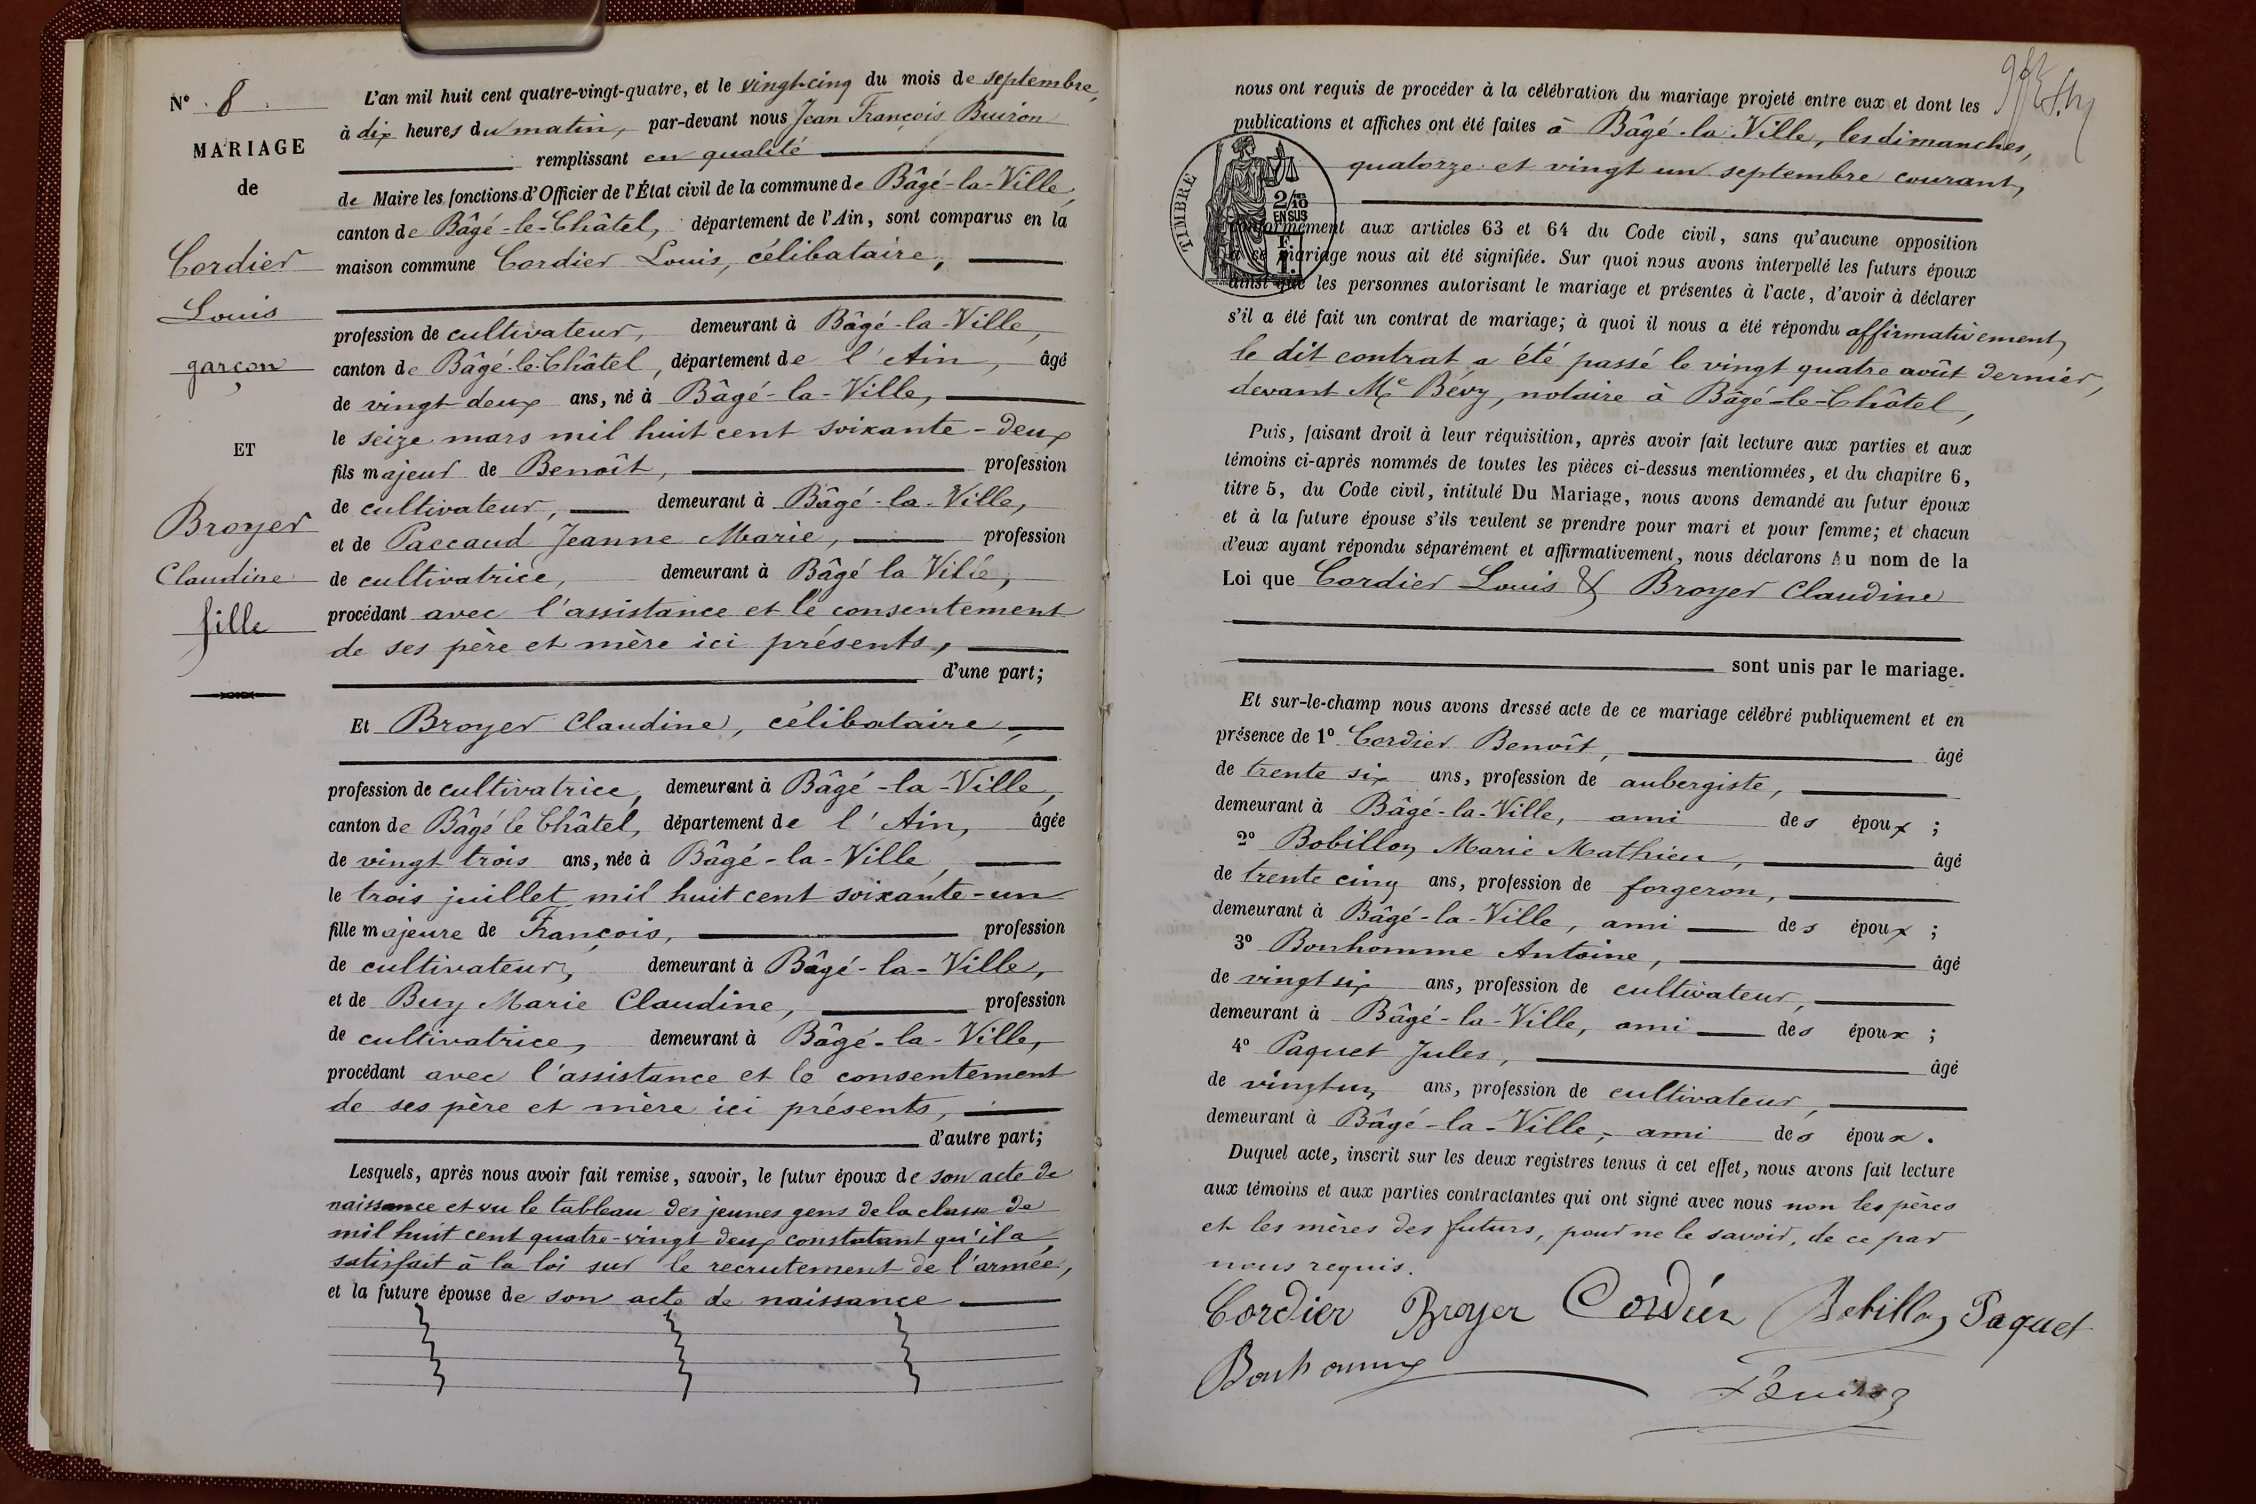 N° 8
MARIAGE
de
Cordier
Louis
garçon
ET
Broyer
Claudine
fille
L'an mil huit cent quatre-vingt-quatre, et le vingt-cinq du mois de septembre,
à dix heures du matin, par-devant nous Jean François Buiron
remplissant en qualité
de Maire les fonctions d'Officier de l'État civil de la commune de Bâgé-la-Ville,
canton de Bâgé-le-Châtel, département de l'Ain, sont comparus en la
maison commune Cordier Louis, célibataire,
profession de cultivateur, demeurant à Bâgé-la-Ville,
canton de Bâgé-le-Châtel, département de l'Ain, âgé
de vingt deux ans, né à Bâgé-la-Ville,
le seize mars mil huit cent soixante-deux
fils majeur de Benoît, profession
de cultivateur, demeurant à Bâgé-la-Ville,
et de Paccaud Jeanne Marie, profession
de cultivatrice, demeurant à Bâgé la Ville,
procédant avec l'assistance et le consentement
de ses père et mère ici présents,
d'une part;
Et Broyer Claudine, célibataire,
profession de cultivatrice, demeurant à Bâgé-la-Ville,
canton de Bâgé le Châtel, département de l'Ain, âgée
de vingt trois ans, née à Bâgé-la-Ville,
le trois juillet mil huit cent soixante-un
fille majeure de François, profession
de cultivateur, demeurant à Bâgé-la-Ville,
et de Buy Marie Claudine, profession
de cultivatrice, demeurant à Bâgé-la-Ville,
procédant avec l'assistance et le consentement
de ses père et mère ici présents,
d'autre part;
Lesquels, après nous avoir fait remise, savoir, le futur époux de son acte de
naissance et vu le tableau des jeunes gens de la classe de
mil huit cent quatre-vingt deux constatant qu'il a
satisfait à la loi sur le recrutement de l'armée,
et la future épouse de son acte de naissance
nous ont requis de procéder à la célébration du mariage projeté entre eux et dont les
publications et affiches ont été faites à Bâgé-la-Ville, les dimanches,
quatorze et vingt un septembre courant,
TIMBRE
2/10 EN SUS
F.
1.
conformément aux articles 63 et 64 du Code civil, sans qu'aucune opposition
à ce mariage nous ait été signifiée. Sur quoi nous avons interpellé les futurs époux
ainsi que les personnes autorisant le mariage et présentes à l'acte, d'avoir à déclarer
s'il a été fait un contrat de mariage; à quoi il nous a été répondu affirmativement,
le dit contrat a été passé le vingt quatre août dernier,
devant Me Bévy, notaire à Bâgé-le-Châtel,
Puis, faisant droit à leur réquisition, après avoir fait lecture aux parties et aux
témoins ci-après nommés de toutes les pièces ci-dessus mentionnées, et du chapitre 6,
titre 5, du Code civil, intitulé Du Mariage, nous avons demandé au futur époux
et à la future épouse s'ils veulent se prendre pour mari et pour femme; et chacun
d'eux ayant répondu séparément et affirmativement, nous déclarons Au nom de la
Loi que Cordier Louis & Broyer Claudine
sont unis par le mariage.
Et sur-le-champ nous avons dressé acte de ce mariage célébré publiquement et en
présence de 1° Cordier Benoît, âgé
de trente six ans, profession de aubergiste,
demeurant à Bâgé-la-Ville, ami des époux ;
2° Bobillon Marie Mathieu, âgé
de trente cinq ans, profession de forgeron,
demeurant à Bâgé-la-Ville, ami des époux ;
3° Bonhomme Antoine, âgé
de vingt six ans, profession de cultivateur,
demeurant à Bâgé-la-Ville, ami des époux ;
4° Paquet Jules, âgé
de vingt un ans, profession de cultivateur,
demeurant à Bâgé-la-Ville, ami des époux.
Duquel acte, inscrit sur les deux registres tenus à cet effet, nous avons fait lecture
aux témoins et aux parties contractantes qui ont signé avec nous non les pères
et les mères des futurs, pour ne le savoir, de ce par
nous requis.
Cordier Broyer Cordier Bobillon Paquet
Bonhomme Buiron